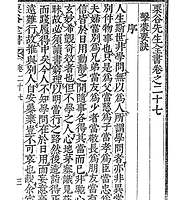 栗谷先生全書卷之二十七
擊蒙要訣
序
人生斯世非學問無以爲人所謂學問者亦非異常
別件物事也只是爲父當慈爲子當孝爲臣當忠爲
夫婦當別爲兄弟當友爲少者當敬長爲朋友當有
信皆於日用動靜之間隨事各得其當而已非馳心
玄妙希覬奇效者也但不學之人心地茅塞識見茫
昧故必須讀書窮理以明當行之路然後造詣得正
而踐履得中矣今人不知學問在於日用而妄意高
遠難行故推與別人自安暴棄豈不可哀也哉余定
栗谷全書 卷二十七